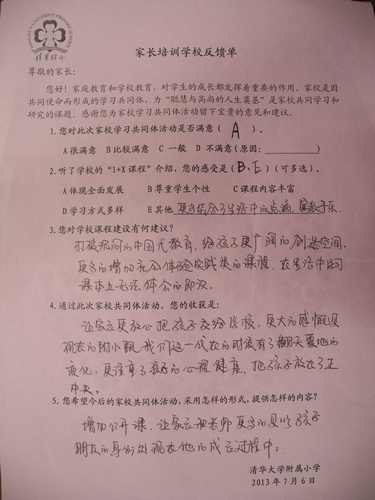 清华附小
家长培训学校反馈单
尊敬的家长:
您好!家庭教育和学校教育,对学生的成长都发挥着重要的作用。家校是因
共同使命而形成的学习共同体,为“聪慧与高尚的人生奠基”是家校共同学习和
研究的课题。感谢您为家校学习共同体活动留下宝贵的意见和建议。
1.您对此次家校学习共同体活动是否满意( A )。
A 很满意 B 比较满意 C 一般 D 不满意(原因:)
2.听了学校的“1+X 课程”介绍,您的感受是(B、E)(可多选)。
A 体现全面发展 B 尊重学生个性 C 课程内容丰富
D 学习方式多样 E 其他 更多结合了生活中的点滴,寓教于乐.
3.您对学校课程建设有何建议?
打破沉闷的中国式教育,给孩子更广阔的创造空间,
更多的增加社会体验实践类的课程,在生活中学习
课本上无法体会的知识。
4.通过此次家校共同体活动,您的收获是:
让家长更放心把孩子交给学校,更大的感慨是
现在的附小跟我们这一代在的时候有了翻天覆地的
变化,更注重了孩子的心理健康,把孩子放在了正
中央。
5.您希望今后的家校共同体活动,采用怎样的形式,提供怎样的内容?
增加公开课,让家长和老师更多的是以孩子
朋友的身份出现在他的成长过程中。
清华大学附属小学
2013 年 7 月 6 日